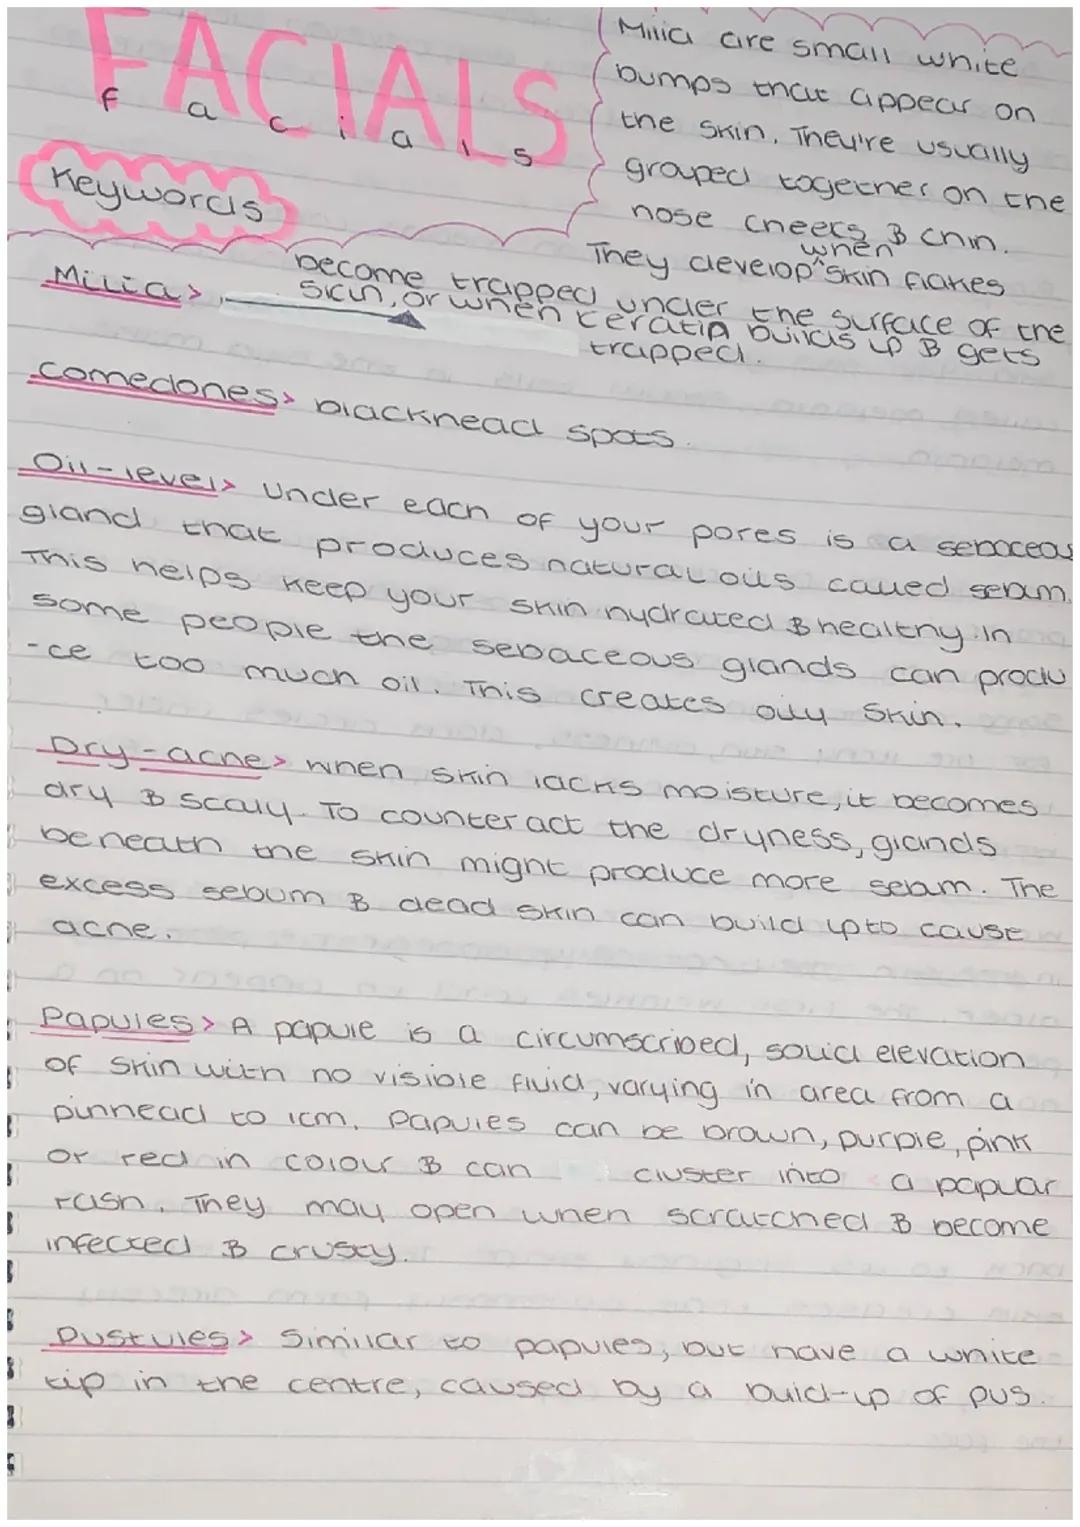 FACIALS
facials
Keywords
Milia are small white
bumps that appear on
the skin. They're usually
grouped together on the
nose cheeks & chin.
They develop when skin flakes
Milia>
become trapped under the surface of the
skin, or when keratin builds up & gets
trapped.
Comedones> blackhead spots.
Oil-level> Under each of your pores is a sebaceous
gland that produces natural oils called sebum.
This helps keep your skin hydrated & healthy. In
some people the sebaceous glands can produ
-ce too much oil. This creates oily skin.
Dry-acne> When skin lacks moisture, it becomes
dry & scaly. To counteract the dryness, glands
beneath the skin might produce more sebum. The
excess sebum & dead skin can build up to cause
acne.
Papules> A papule is a circumscribed, solid elevation
of skin with no visible fluid, varying in area from a
pinhead to 1cm. Papules can be brown, purple, pink
or red in colour & can cluster into a papular
rash. They may open when scratched & become
infected & crusty.
Pustules> Similar to papules, but have a white
tip in the centre, caused by a build-up of pus.